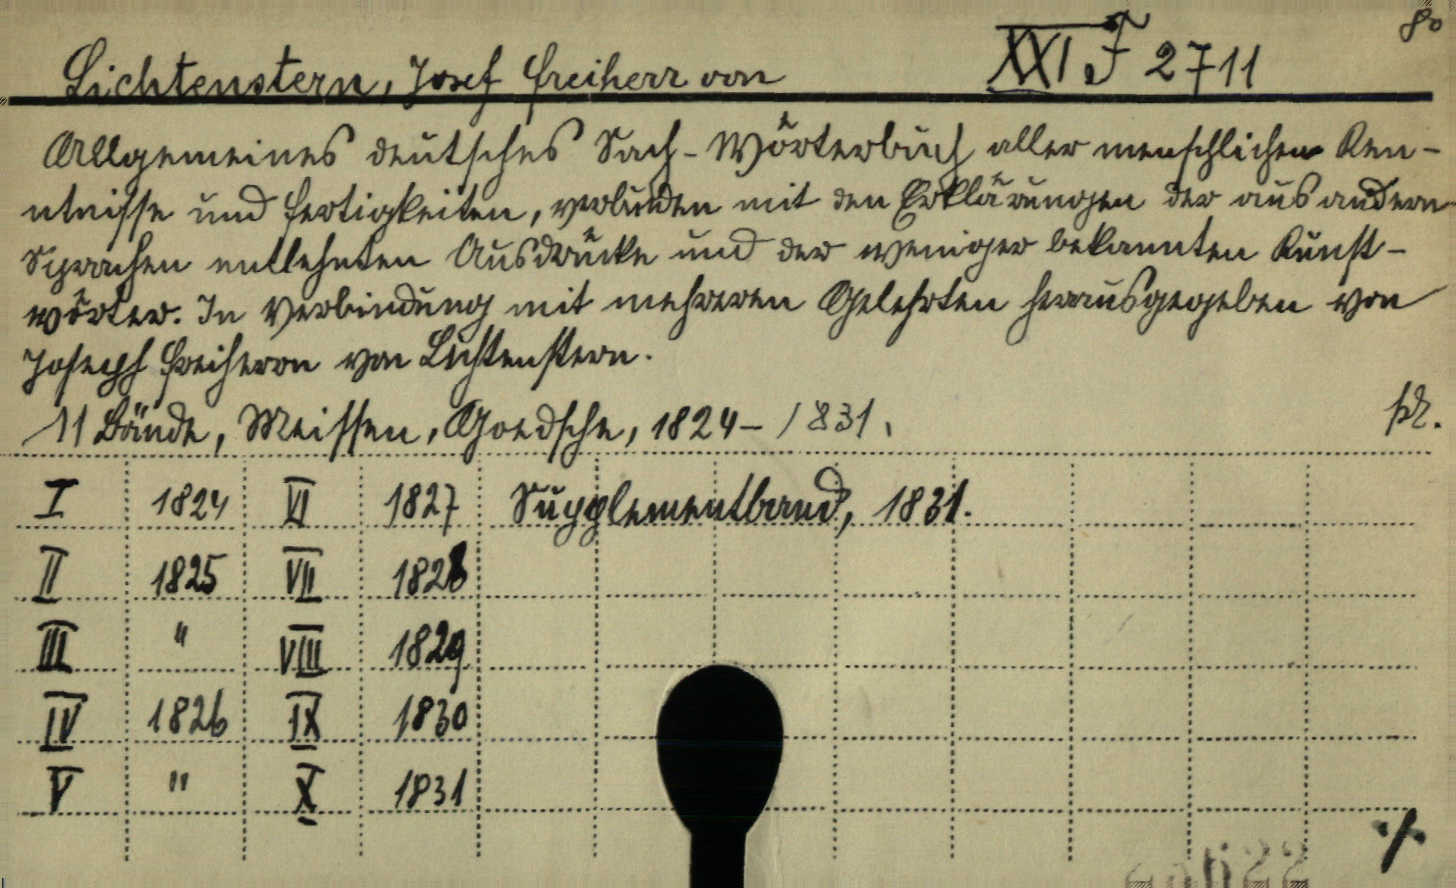 8°
Lichtenstern, Josef Freiherr von XXI F 2711
Allgemeines deutsches Sach-Wörterbuch aller menschlichen Ken-
ntnisse und Fertigkeiten, verbunden mit den Erklärungen der aus andern
Sprachen entlehnten Ausdrücke und der weniger bekannten Kunst-
wörter. In Verbindung mit mehreren Gelehrten herausgegeben von
Joseph Freiherrn von Lichtenstern.
11 Bände, Meissen, Goedsche, 1824-1831.
I 1824 VI 1827 Supplementband, 1831.
II 1825 VII 1828
III " VIII 1829
IV 1826 IX 1830
V " X 1831
./.